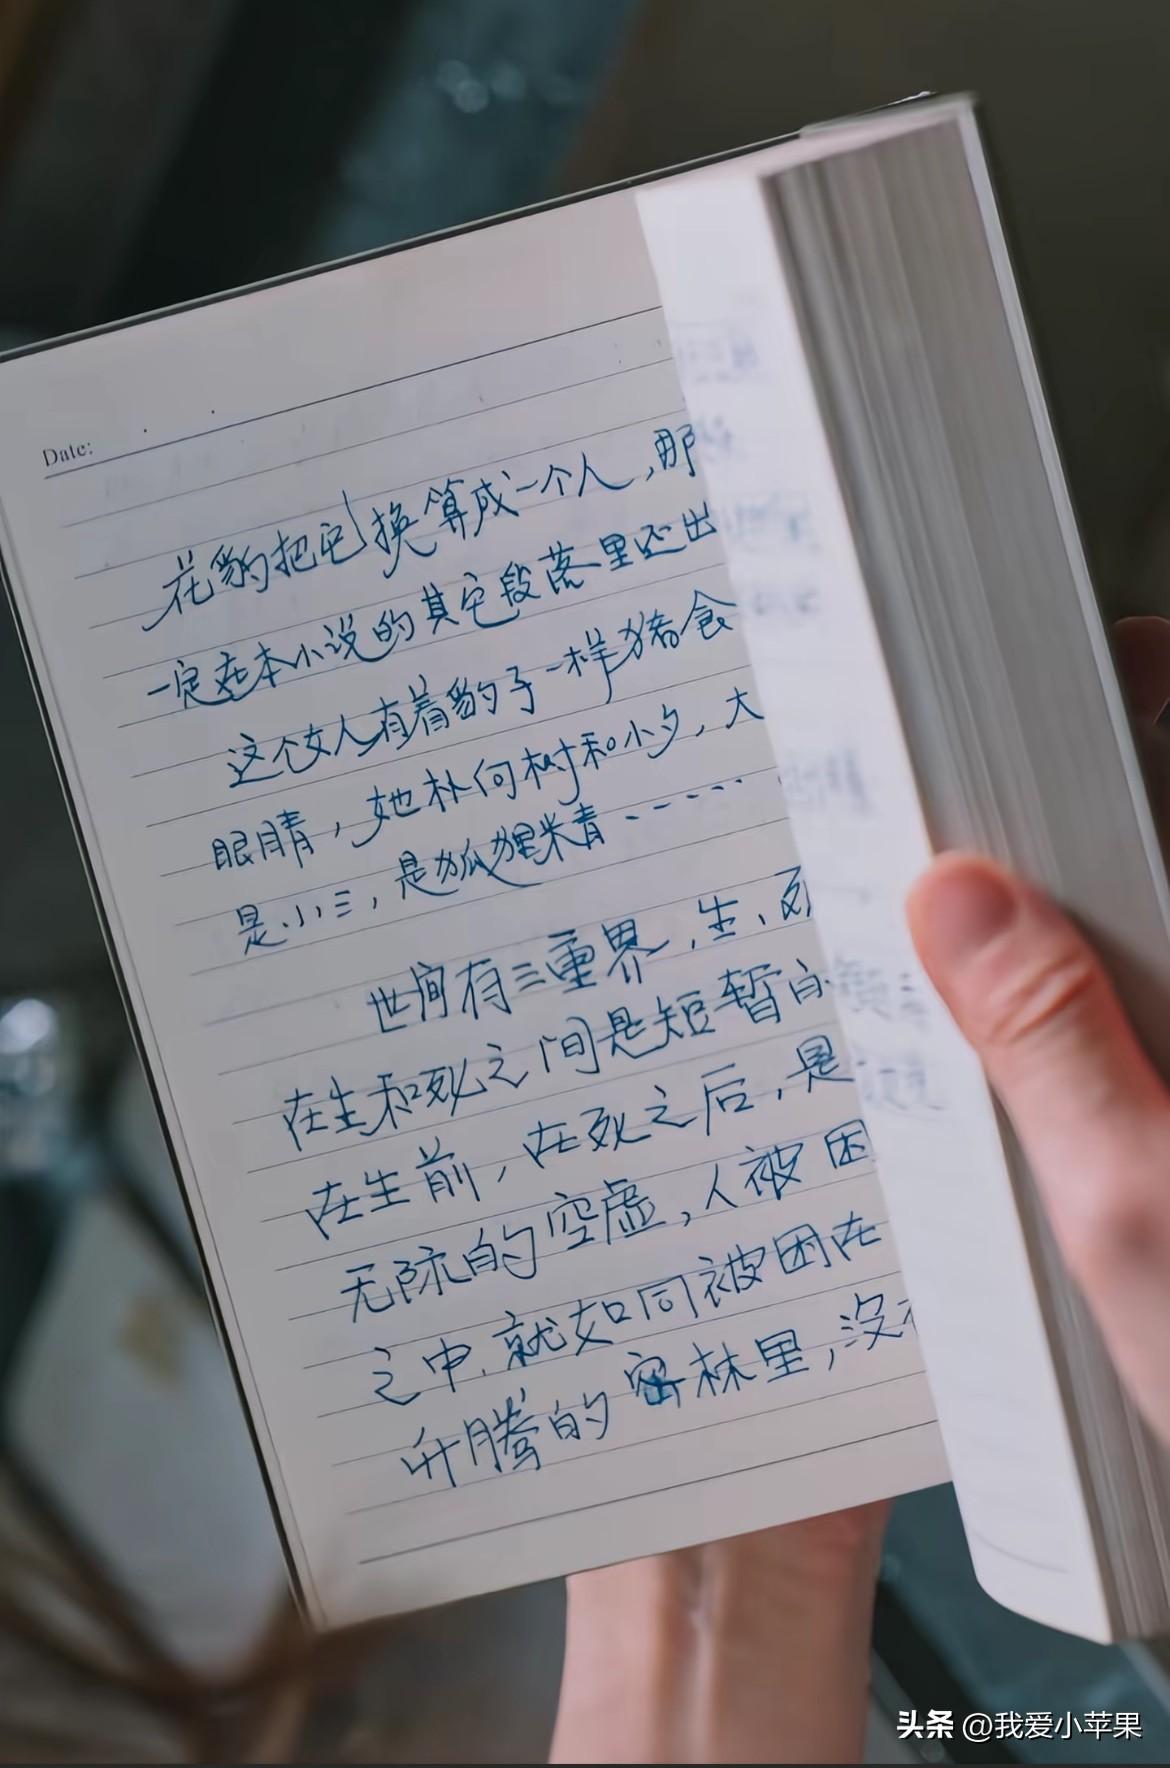 Date:
花豹把它换算成一个人，那
一定在本小说的其它段落里还出
这个女人有着豹子一样猪食
眼睛，她朴何树和小夕，大
是小三，是狐狸米青……
世间有三重界，生、死
在生和死之间是短暂的
在生前，在死之后，是
无际的空虚，人被困
之中，就如同被困在
升腾的密林里，没
头条 @我爱小苹果